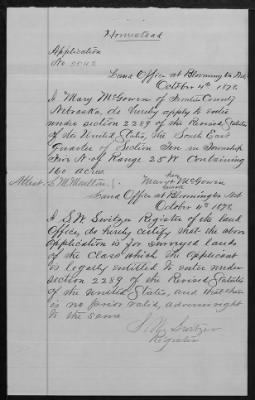 Homestead
Application
No.
Land Office at Bloomington Neb
October 4th 187
I Mary McGowen of County
Nebraska, do hereby apply to enter
under section 2289 of the Revised Statutes
of the United States, the South East
Quarter of Section Ten in Township
Five N. of Range 25 W Containing
160 acres.
Attest her
Mary McGowen
mark
Land Office at Bloomington Neb
October 4th 187
I S.W. Switzer Register of the land
Office, do hereby certify that the above
application is for surveyed lands
of the class which the applicant
is legally entitled to enter under
section 2289 of the Revised Statutes
of the United States, and that there
is no prior valid, adverse right
to the same
S. W. Switzer
Register